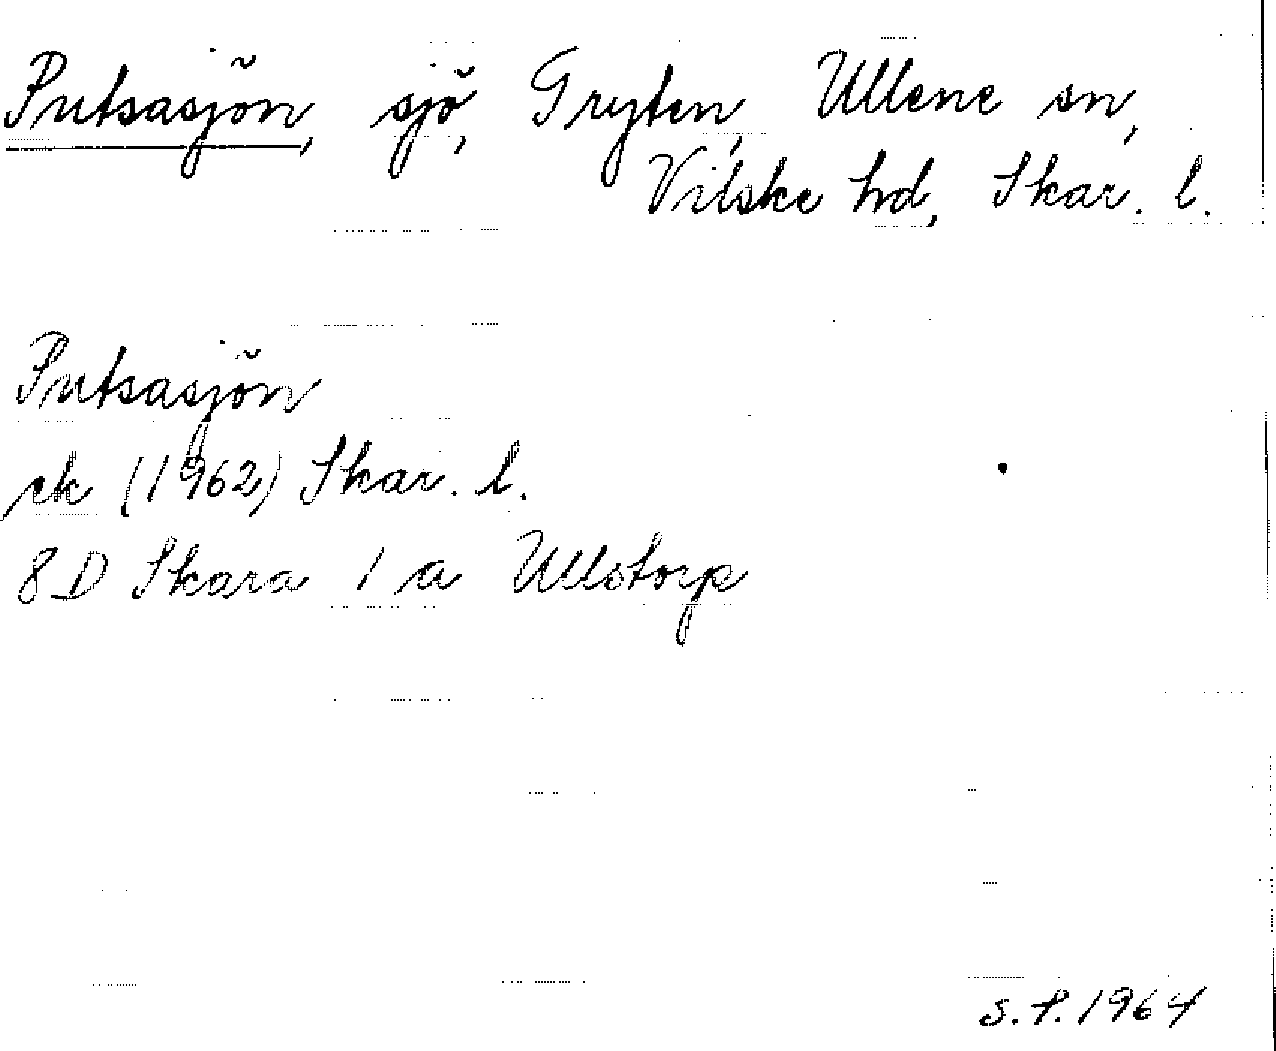 Putsasjön, sjö, Gryten, Ullene sn,
Vilske hd, Skar. l.
Putsasjön
ek (1962) Skar. l.
8D Skara 1 a Ullstorp
S.P. 1964